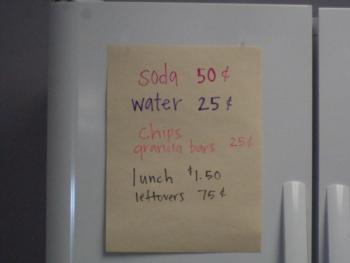 soda 50¢
water 25¢
chips
granula bars 25¢
lunch $1.50
leftovers 75¢